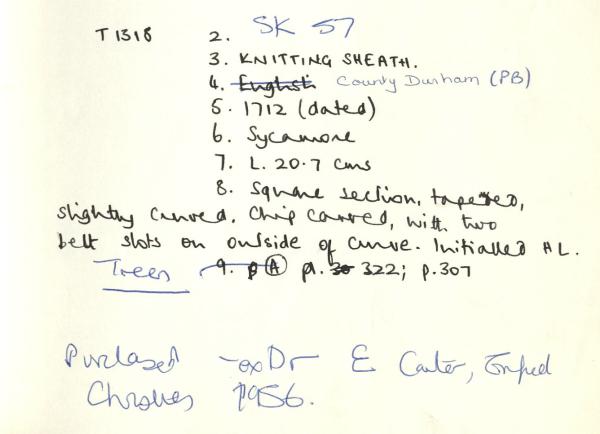 T1318 2. SK 57
3. KNITTING SHEATH.
4. English County Durham (PB)
5. 1712 (dated)
6. Sycamore
7. L. 20.7 cms
8. Square section, tapered,
slightly curved. Chip carved, with two
belt slots on outside of curve. Initialled HL.
Trees 9. A pl. 322; p.307
Purchased Dr E Carter,
1956.